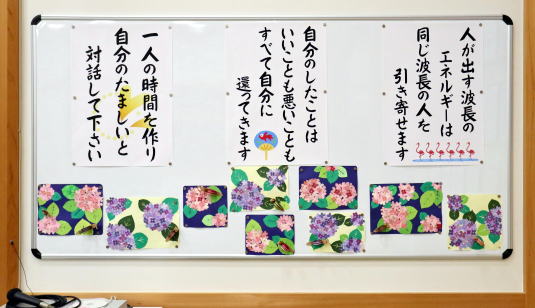 人が出す波長の
エネルギーは
同じ波長の人を
引き寄せます
自分のしたことは
いいことも悪いことも
すべて自分に
還ってきます
一人の時間を作り
自分のたましいと
対話して下さい